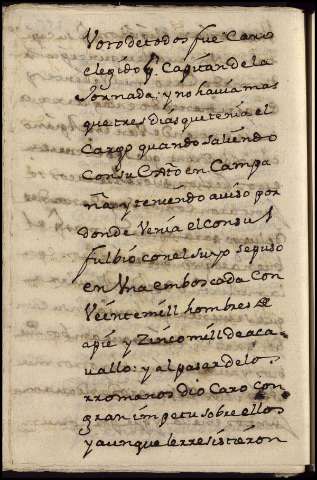 Voto de todos fue Caro
elegido p. Capitan de la
Jornada: y no havia mas
que tres dias que tenia el
Cargo quando saliendo
Con su Exto en Campa
ña y teniendo aviso por
donde Venia el Consul
fulbio con el suyo se puso
en Una emboscada Con
Veinte mill hombres
apie y Zinco mill de aca
vallo: y al pasar de lo
rromanos dio Caro con
gran impetu sobre ellos
y aunque le rresistieron